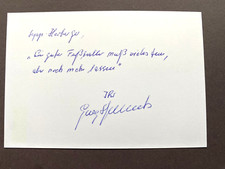 Sepp Herberger:
„Ein guter Fußballer muß vieles tun,
aber noch mehr lassen"
Ihr